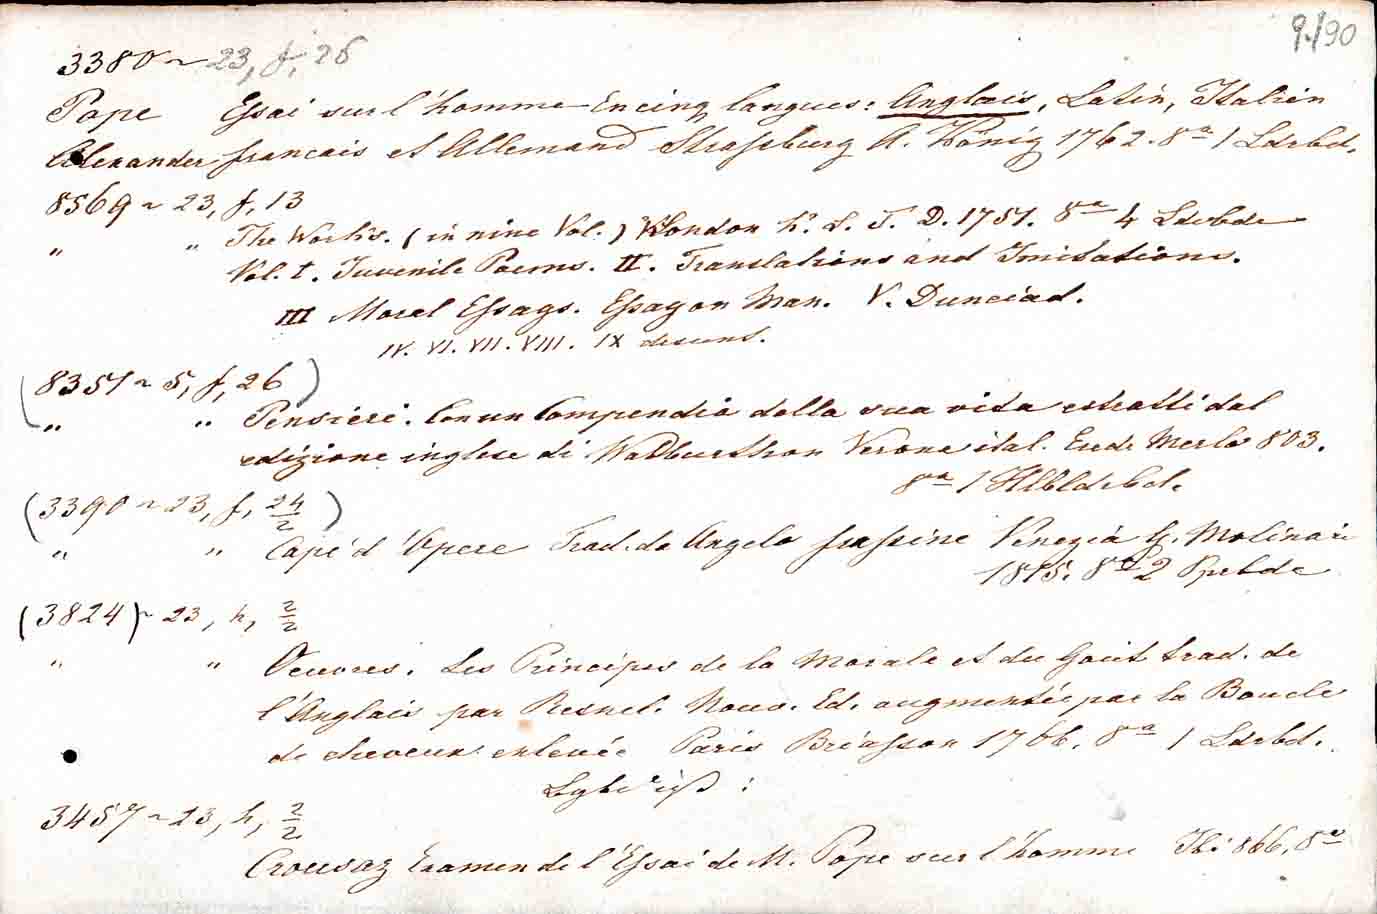 9/90
3380 ~ 23, f, 26
Pope Essai sur l'homme En cinq langues: Anglais, Latin, Italien
Alexander francais et Allemand Strassburg A. König 1762. 8° 1 Ldrbd.
8569 ~ 23, f, 13
" " The Works. (in nine Vol.) London h. L. T. D. 1751. 8° 4 Ldrbde
Vol. I. Juvenile Poems. II. Translations and Imitations.
III Moral Essays. Essay on Man. V. Dunciad.
IV. VI. VII. VIII. IX desunt.
(8351 ~ 5, f, 26)
" " Pensieri. Con un Compendio della sua vita estratti dal
edizione inglese di Verona ital. Ered. Merlo 803.
8° 1 Hlbldrbd.
(3390 ~ 23, f, 24/2)
" " Capi d'Opere Trad. da Angelo Venezia G. Molinari
1815. 8° 2 Ppebde
(3824) ~ 23, h, 2/2
" " Oeuvres. Les Principes de la Morale et du Goût trad. de
l'Anglais par Resnel. Nouv. Ed. augmentée par la Boucle
de cheveux enlevée Paris Briasson 1766. 8° 1 Ldrbd.
3457 ~ 23, h, 2/2
Crousaz Examen de l'Essai de M. Pope sur l'homme Ibi 866. 8°